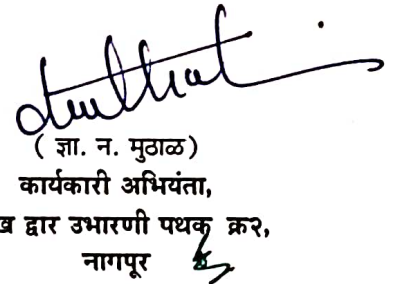 ( ज्ञा. न. मुठाळ)
कार्यकारी अभियंता,
द्वार उभारणी पथक क्र२,
नागपूर